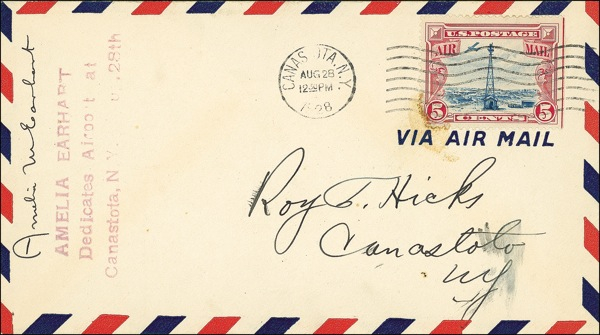 Amelia M Earhart
AMELIA EARHART
Dedicates Airport at
Canastota, N.Y. 28th
CANASTOTA, N.Y.
AUG 28
PM
1928
U.S. POSTAGE
AIR MAIL
5 CENTS 5
VIA AIR MAIL
Roy T. Hicks
Canastota
NY